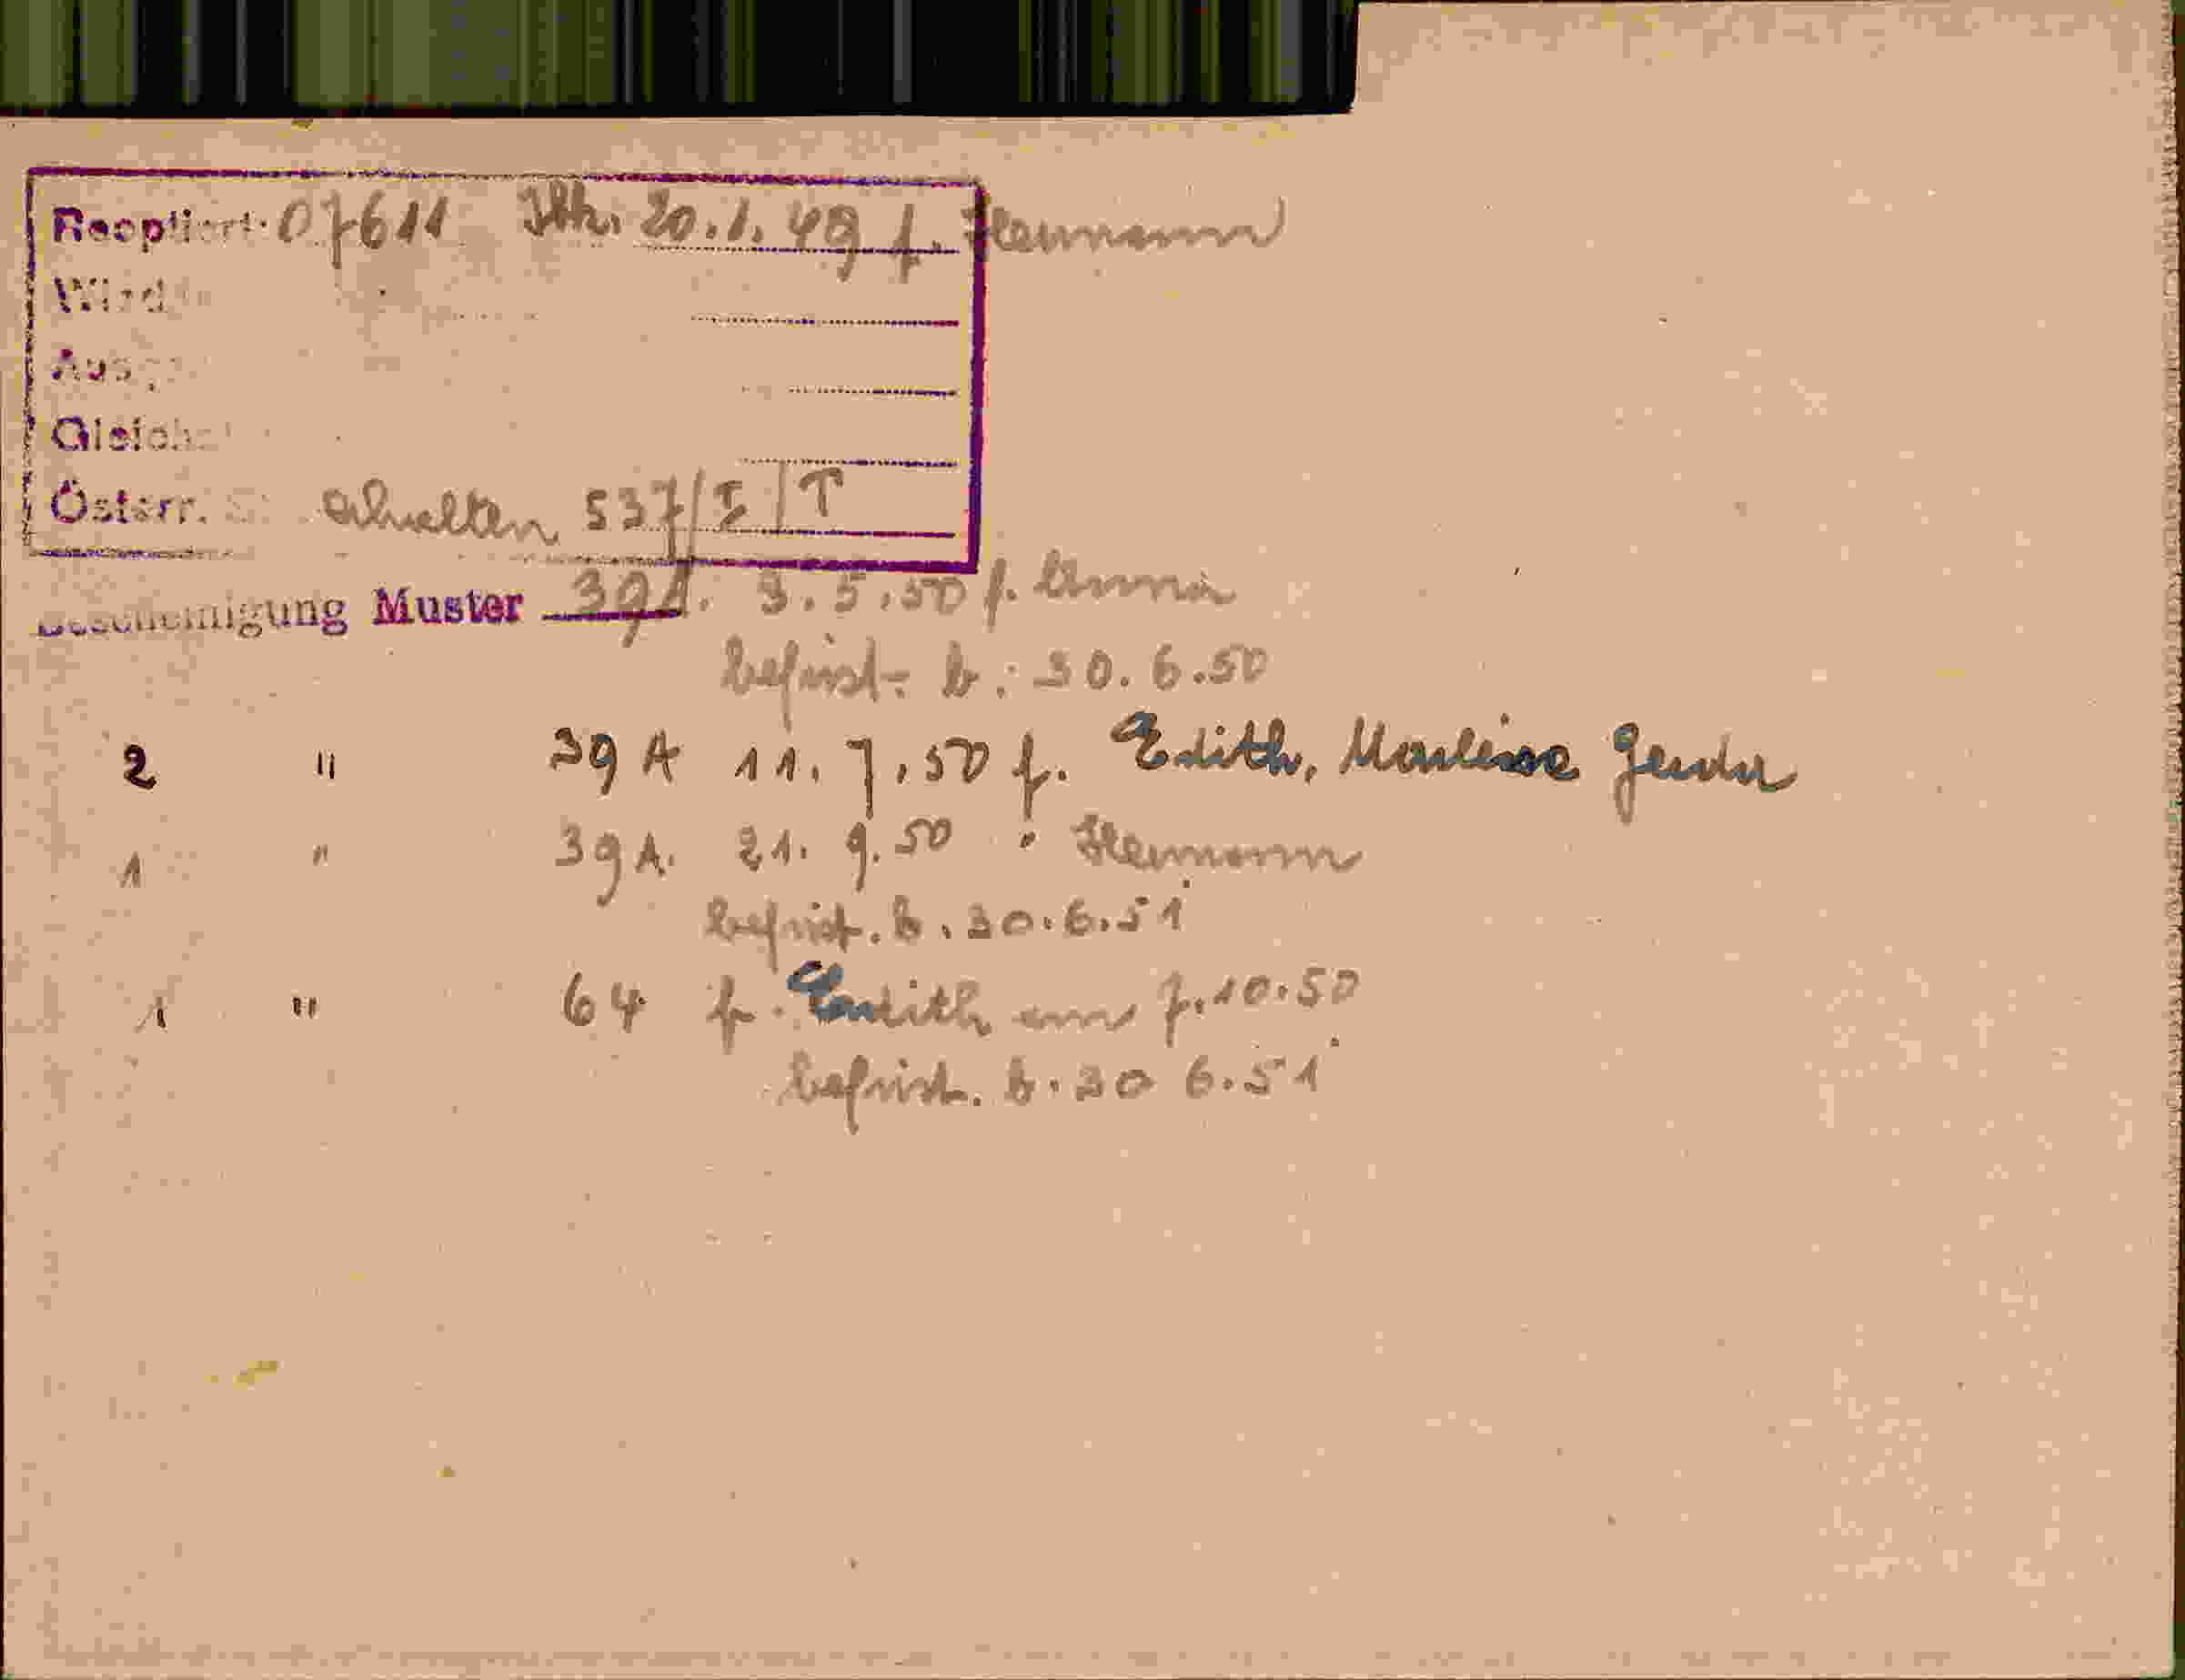 Reoptiert: 07611 Ibk. 20.1.49 f. Hermann
Wird
Ausg
Gleich
Österr. S erhalten 537/I/T
Bescheinigung Muster 39A. 9.5.50 f. Anna
befrist. b. 30.6.50
2 " 39 A 11.7.50 f. Edith,
1 " 39A. 21.9.50 " Hermann
befrist. b. 30.6.51
1 " 64 f. Edith am 7.10.50
befrist. b. 30 6.51